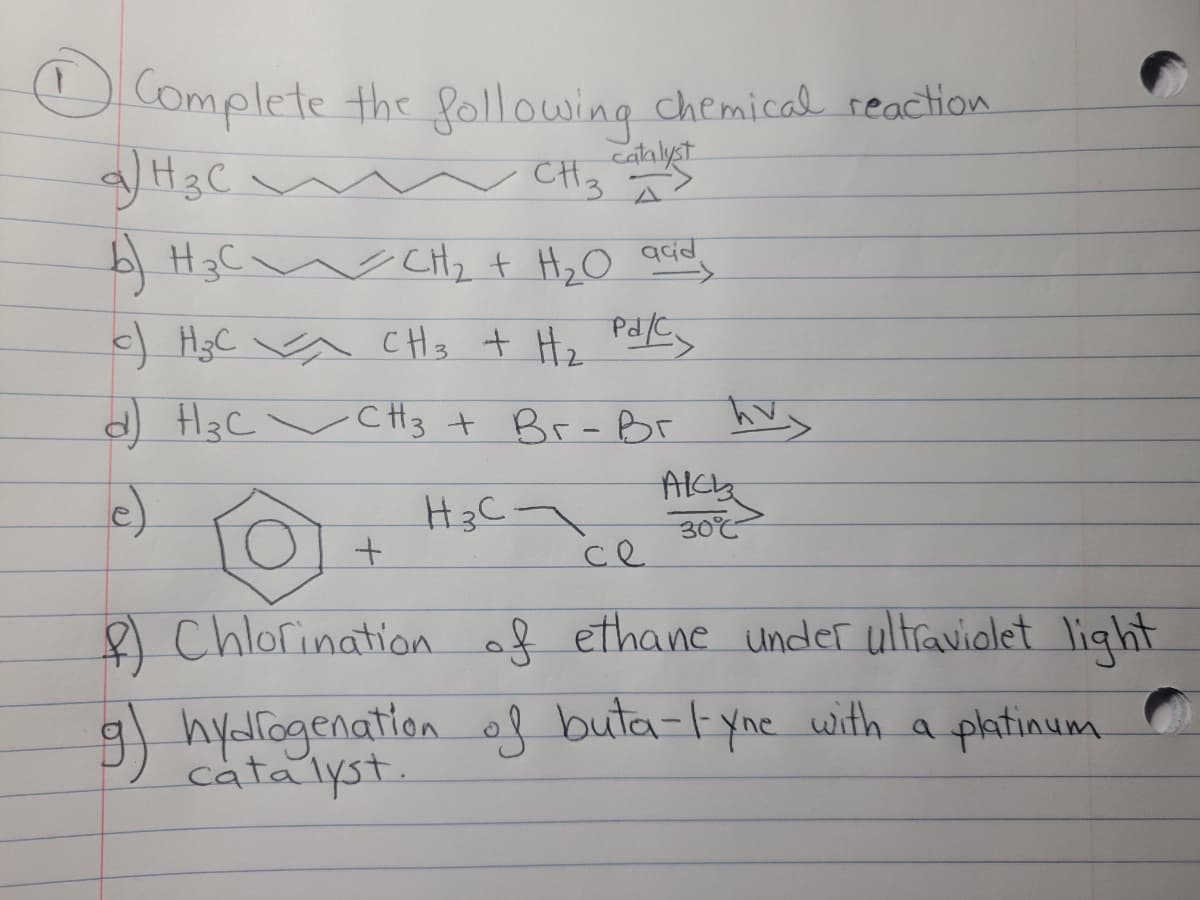 ① Complete the following chemical reaction
a) H₃C CH₃ catalyst Δ →
b) H₃C CH₂ + H₂O acid →
c) H₃C CH₃ + H₂ Pd/C →
d) H₃C CH₃ + Br - Br hν →
e) + H₃C Cl AlCl₃ 30°C →
f) Chlorination of ethane under ultraviolet light
g) hydrogenation of buta-1-yne with a platinum
catalyst.